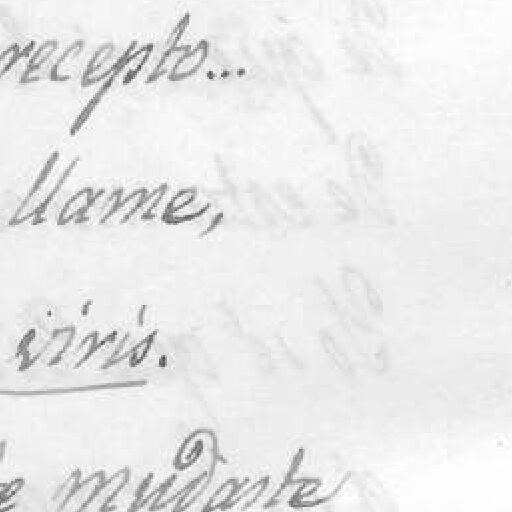 recepto...
llame,
viris.
te mudaste